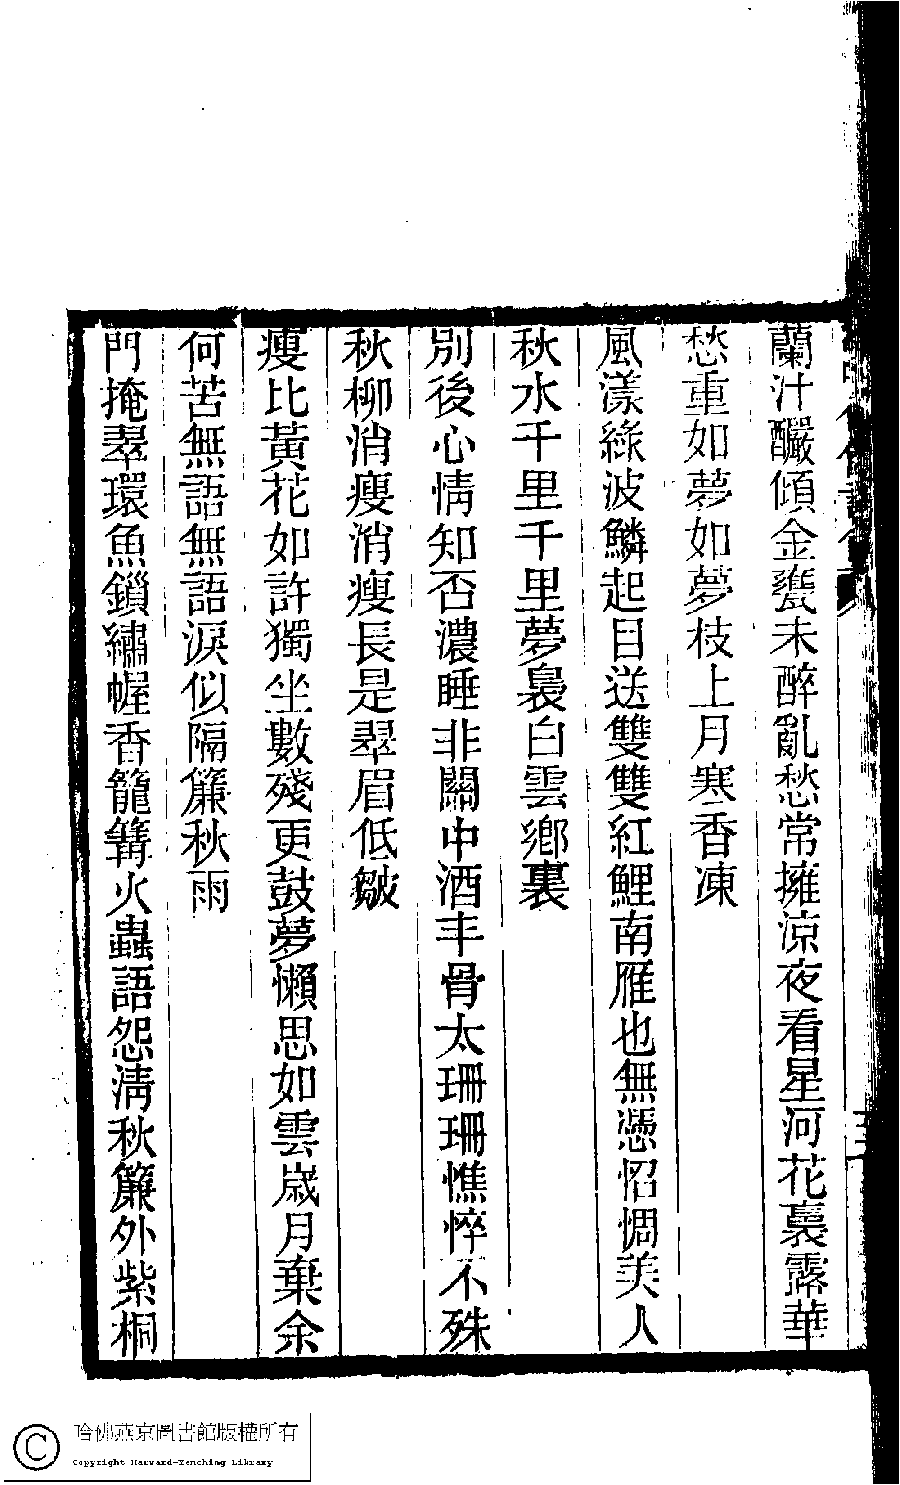 蘭汁釅傾金甕未醉亂愁常擁涼夜看星河花裏露華
愁重如夢如夢枝上月寒香凍
風漾綠波鱗起目送雙雙紅鯉南雁也無憑怊惆美人
秋水千里千里夢裊白雲鄉裏
別後心情知否濃睡非關中酒丰骨太珊珊憔悴不殊
秋柳消瘦消瘦長是翠眉低皺
瘦比黃花如許獨坐數殘更鼓夢懶思如雲歲月棄余
何苦無語無語淚似隔簾秋雨
門掩翠環魚鎖繡幄香籠篝火蟲語怨淸秋簾外紫桐
哈佛燕京圖書館版權所有
Copyright Harvard-Yenching Library